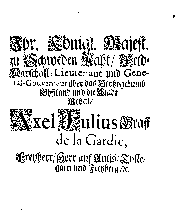 Ihr. Königl. Majest.
zu Schweden Raht/ Feld-
Marschall: Lieutenant und Gene-
ral-Gouverneur über das Hertzogthumb
Ehstland und die Stadt
Reval/
Axel Julius Graff
de la Gardie,
Freyherr/ Herr auff
und Freyberg/ &c.